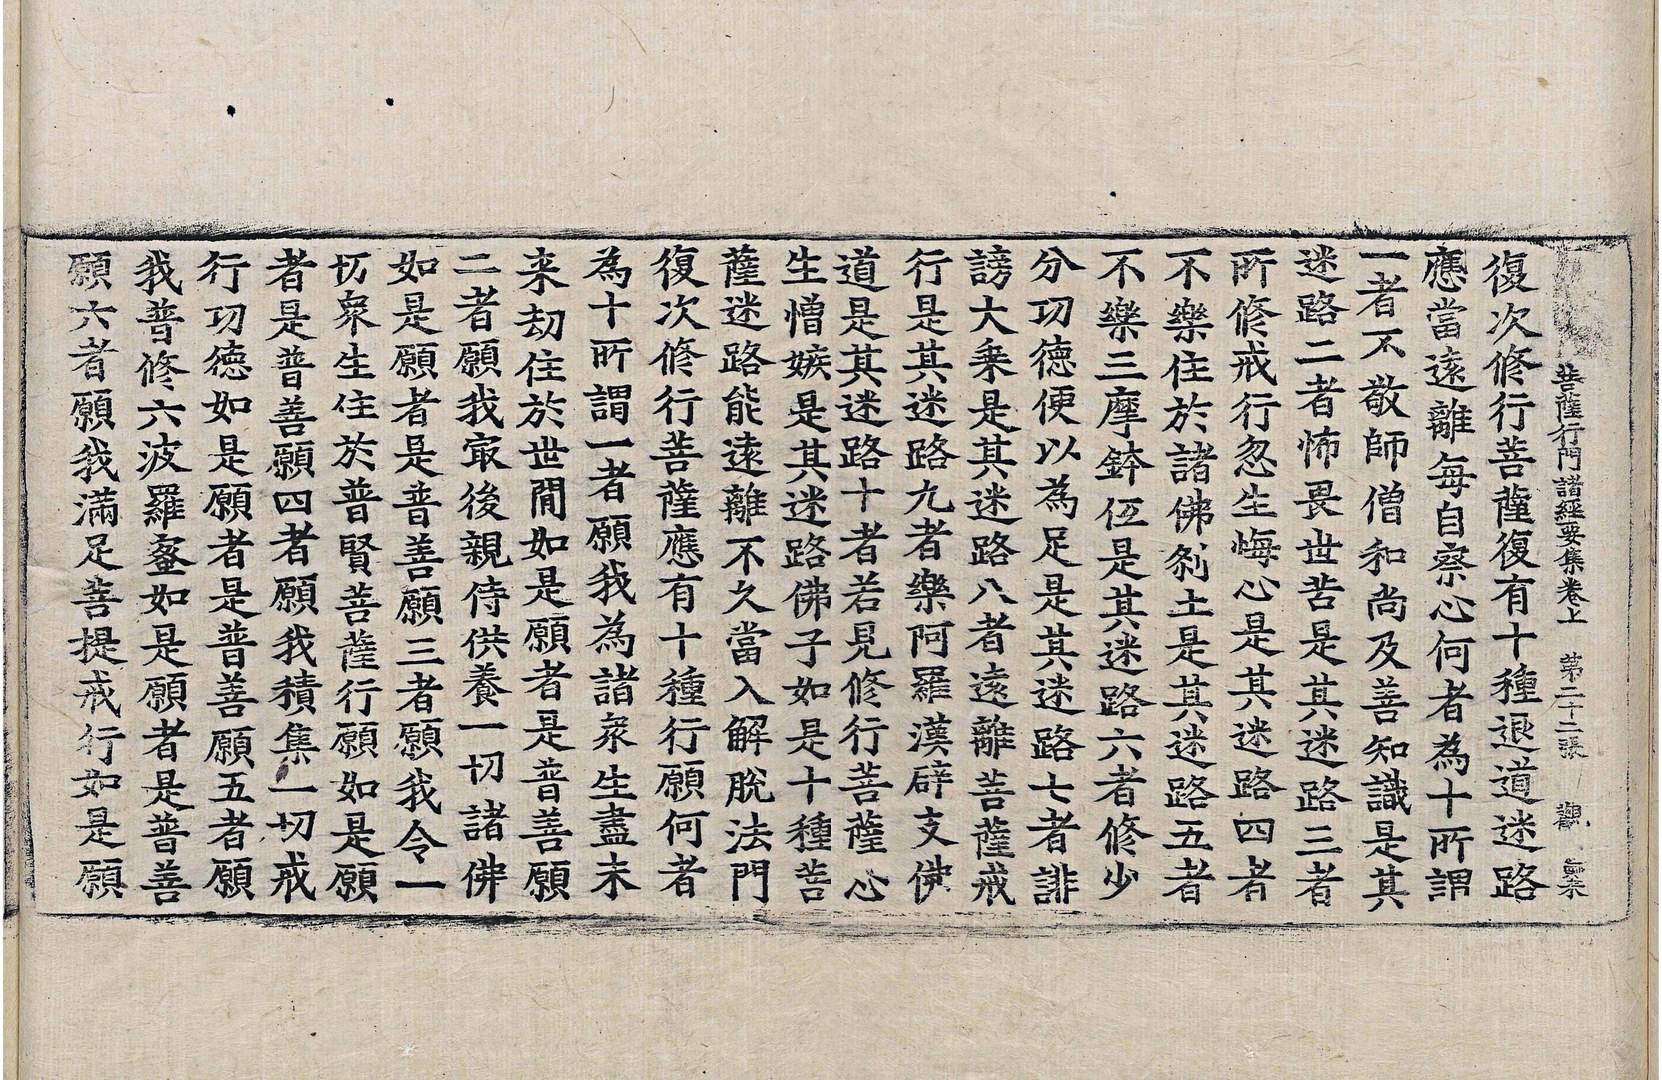 菩薩行門諸經要集卷上 第二十二張
復次修行菩薩復有十種退道迷路
應當遠離每自察心何者為十所謂
一者不敬師僧和尚及善知識是其
迷路二者怖畏世苦是其迷路三者
所修戒行忽生悔心是其迷路四者
不樂住於諸佛剎土是其迷路五者
不樂三摩鉢伍是其迷路六者修少
分功德便以為足是其迷路七者誹
謗大乗是其迷路八者遠離菩薩戒
行是其迷路九者樂阿羅漢辟支佛
道是其迷路十者若見修行菩薩心
生憎嫉是其迷路佛子如是十種菩
薩迷路能遠離不久當入解脫法門
復次修行菩薩應有十種行願何者
為十所謂一者願我為諸衆生盡未
来劫住於世間如是願者是普善願
二者願我冣後親侍供養一切諸佛
如是願者是普善願三者願我令一
切衆生住於普賢菩薩行願如是願
者是普善願四者願我積集一切戒
行功德如是願者是普善願五者願
我普修六波羅蜜如是願者是普善
願六者願我滿足菩提戒行如是願